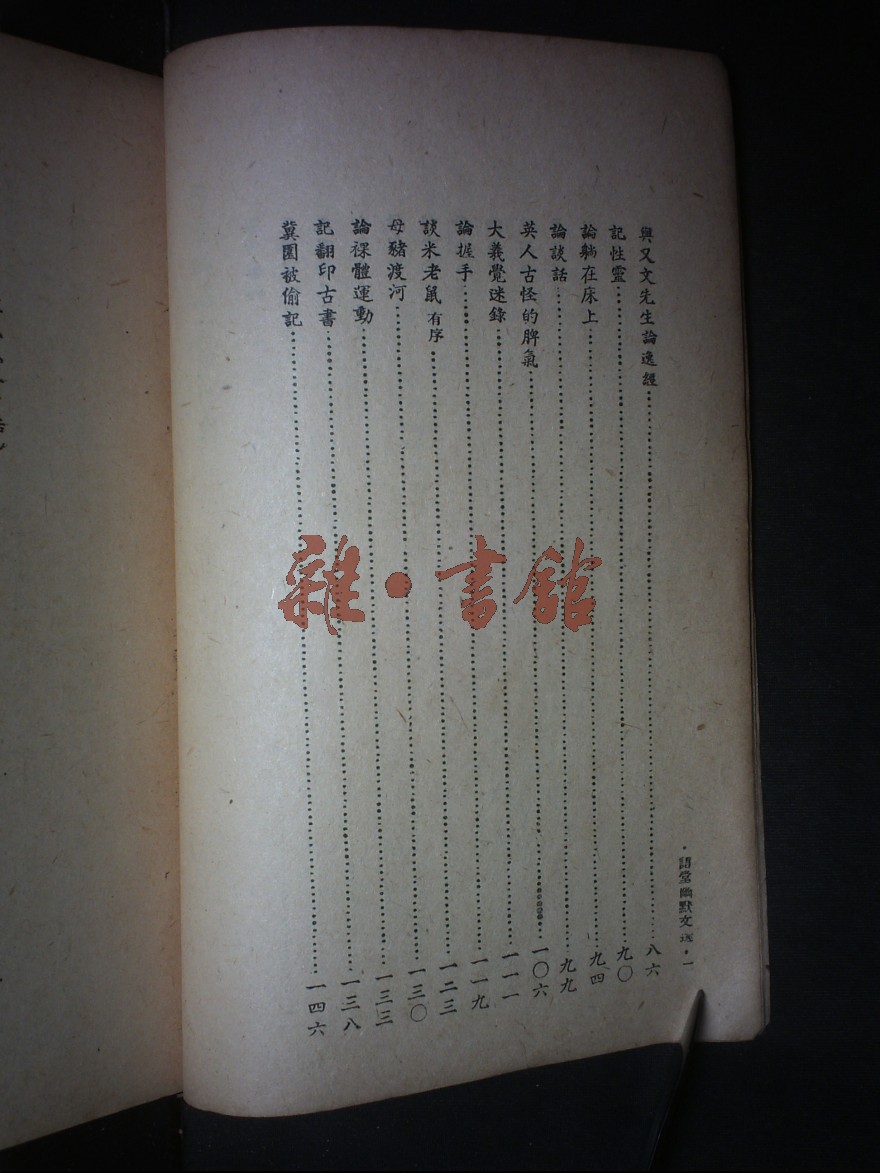 與又文先生論逸經……八六
記性靈……九〇
論躺在床上……九四
論談話……九九
英人古怪的脾氣……一〇六
大義覺迷錄……一一一
論握手……一一九
談米老鼠 有序……一二三
母豬渡河……一三〇
論裸體運動……一三三
記翻印古書……一三八
冀園被偷記……一四六
·語堂幽默文選·一
雜·書館